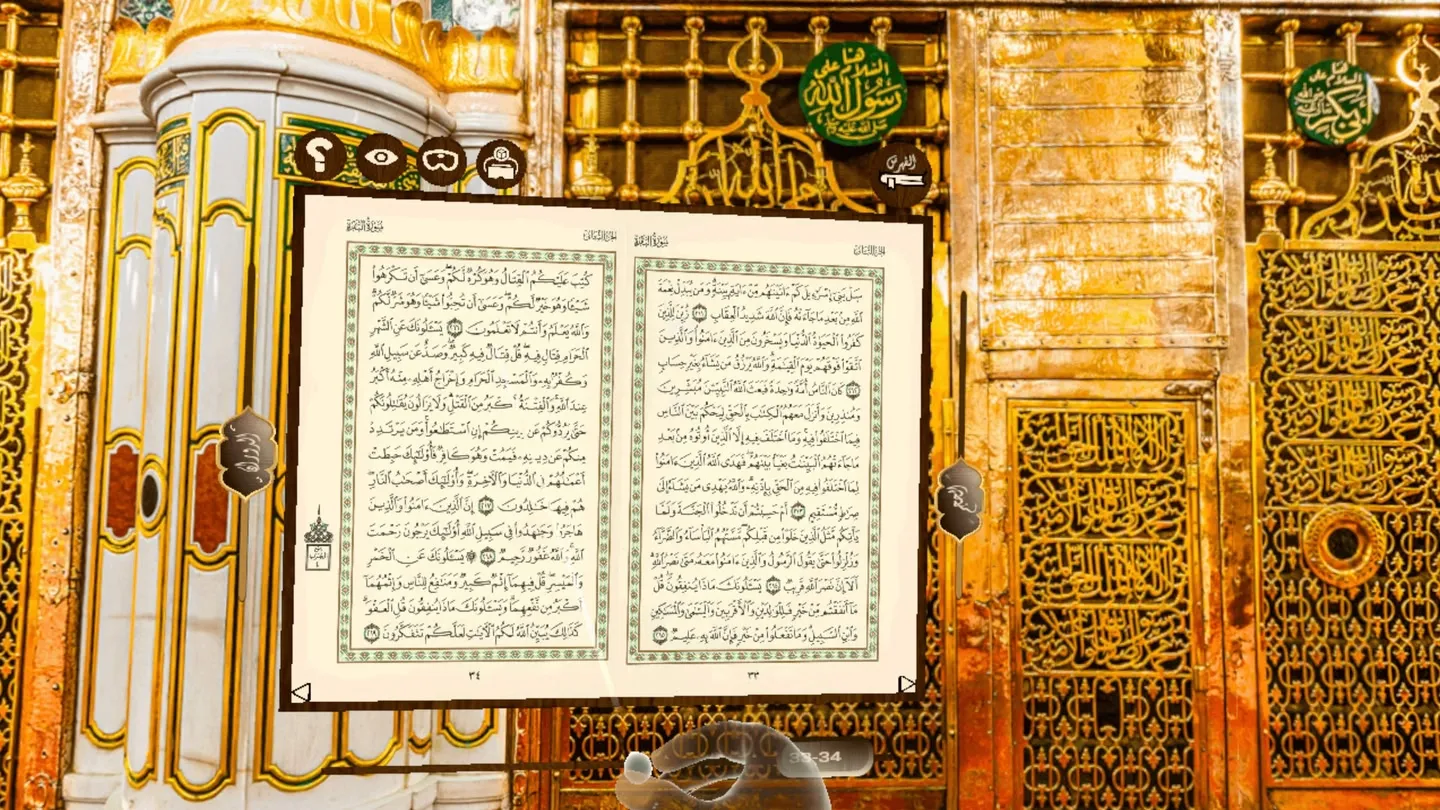 هنا السلام علي
رسول الله
صلى الله عليه وسلم
الفهرس
سُورَةُ البَقَرَةِ
الجُزْءُ الثَّانِي
سَلْ بَنِىٓ إِسْرَٰٓءِيلَ كَمْ ءَاتَيْنَٰهُم مِّنْ ءَايَةٍۭ بَيِّنَةٍ وَمَن يُبَدِّلْ نِعْمَةَ
ٱللَّهِ مِنۢ بَعْدِ مَا جَآءَتْهُ فَإِنَّ ٱللَّهَ شَدِيدُ ٱلْعِقَابِ ٢١١ زُيِّنَ لِلَّذِينَ
كَفَرُوا۟ ٱلْحَيَوٰةُ ٱلدُّنْيَا وَيَسْخَرُونَ مِنَ ٱلَّذِينَ ءَامَنُوا۟ وَٱلَّذِينَ
ٱتَّقَوْا۟ فَوْقَهُمْ يَوْمَ ٱلْقِيَٰمَةِ وَٱللَّهُ يَرْزُقُ مَن يَشَآءُ بِغَيْرِ حِسَابٍ
٢١٢ كَانَ ٱلنَّاسُ أُمَّةً وَٰحِدَةً فَبَعَثَ ٱللَّهُ ٱلنَّبِيِّۦنَ مُبَشِّرِينَ
وَمُنذِرِينَ وَأَنزَلَ مَعَهُمُ ٱلْكِتَٰبَ بِٱلْحَقِّ لِيَحْكُمَ بَيْنَ ٱلنَّاسِ
فِيمَا ٱخْتَلَفُوا۟ فِيهِ وَمَا ٱخْتَلَفَ فِيهِ إِلَّا ٱلَّذِينَ أُوتُوهُ مِنۢ بَعْدِ
مَا جَآءَتْهُمُ ٱلْبَيِّنَٰتُ بَغْيًۢا بَيْنَهُمْ فَهَدَى ٱللَّهُ ٱلَّذِينَ ءَامَنُوا۟
لِمَا ٱخْتَلَفُوا۟ فِيهِ مِنَ ٱلْحَقِّ بِإِذْنِهِۦ وَٱللَّهُ يَهْدِى مَن يَشَآءُ إِلَىٰ
صِرَٰطٍ مُّسْتَقِيمٍ ٢١٣ أَمْ حَسِبْتُمْ أَن تَدْخُلُوا۟ ٱلْجَنَّةَ وَلَمَّا
يَأْتِكُم مَّثَلُ ٱلَّذِينَ خَلَوْا۟ مِن قَبْلِكُم مَّسَّتْهُمُ ٱلْبَأْسَآءُ وَٱلضَّرَّآءُ
وَزُلْزِلُوا۟ حَتَّىٰ يَقُولَ ٱلرَّسُولُ وَٱلَّذِينَ ءَامَنُوا۟ مَعَهُۥ مَتَىٰ نَصْرُ ٱللَّهِ
أَلَآ إِنَّ نَصْرَ ٱللَّهِ قَرِيبٌ ٢١٤ يَسْـَٔلُونَكَ مَاذَا يُنفِقُونَ قُلْ
مَآ أَنفَقْتُم مِّنْ خَيْرٍ فَلِلْوَٰلِدَيْنِ وَٱلْأَقْرَبِينَ وَٱلْيَتَٰمَىٰ وَٱلْمَسَٰكِينِ
وَٱبْنِ ٱلسَّبِيلِ وَمَا تَفْعَلُوا۟ مِنْ خَيْرٍ فَإِنَّ ٱللَّهَ بِهِۦ عَلِيمٌ ٢١٥
٣٣
سُورَةُ البَقَرَةِ
الجُزْءُ الثَّانِي
كُتِبَ عَلَيْكُمُ ٱلْقِتَالُ وَهُوَ كُرْهٌ لَّكُمْ وَعَسَىٰٓ أَن تَكْرَهُوا۟
شَيْـًٔا وَهُوَ خَيْرٌ لَّكُمْ وَعَسَىٰٓ أَن تُحِبُّوا۟ شَيْـًٔا وَهُوَ شَرٌّ لَّكُمْ
وَٱللَّهُ يَعْلَمُ وَأَنتُمْ لَا تَعْلَمُونَ ٢١٦ يَسْـَٔلُونَكَ عَنِ ٱلشَّهْرِ
ٱلْحَرَامِ قِتَالٍ فِيهِ قُلْ قِتَالٌ فِيهِ كَبِيرٌ وَصَدٌّ عَن سَبِيلِ ٱللَّهِ
وَكُفْرٌۢ بِهِۦ وَٱلْمَسْجِدِ ٱلْحَرَامِ وَإِخْرَاجُ أَهْلِهِۦ مِنْهُ أَكْبَرُ
عِندَ ٱللَّهِ وَٱلْفِتْنَةُ أَكْبَرُ مِنَ ٱلْقَتْلِ وَلَا يَزَالُونَ يُقَٰتِلُونَكُمْ
حَتَّىٰ يَرُدُّوكُمْ عَن دِينِكُمْ إِنِ ٱسْتَطَٰعُوا۟ وَمَن يَرْتَدِدْ
مِنكُمْ عَن دِينِهِۦ فَيَمُتْ وَهُوَ كَافِرٌ فَأُو۟لَٰٓئِكَ حَبِطَتْ
أَعْمَٰلُهُمْ فِى ٱلدُّنْيَا وَٱلْءَاخِرَةِ وَأُو۟لَٰٓئِكَ أَصْحَٰبُ ٱلنَّارِ
هُمْ فِيهَا خَٰلِدُونَ ٢١٧ إِنَّ ٱلَّذِينَ ءَامَنُوا۟ وَٱلَّذِينَ
هَاجَرُوا۟ وَجَٰهَدُوا۟ فِى سَبِيلِ ٱللَّهِ أُو۟لَٰٓئِكَ يَرْجُونَ رَحْمَتَ
ٱللَّهِ وَٱللَّهُ غَفُورٌ رَّحِيمٌ ٢١٨ ۞ يَسْـَٔلُونَكَ عَنِ ٱلْخَمْرِ
وَٱلْمَيْسِرِ قُلْ فِيهِمَآ إِثْمٌ كَبِيرٌ وَمَنَٰفِعُ لِلنَّاسِ وَإِثْمُهُمَآ
أَكْبَرُ مِن نَّفْعِهِمَا وَيَسْـَٔلُونَكَ مَاذَا يُنفِقُونَ قُلِ ٱلْعَفْوَ
كَذَٰلِكَ يُبَيِّنُ ٱللَّهُ لَكُمُ ٱلْءَايَٰتِ لَعَلَّكُمْ تَتَفَكَّرُونَ ٢١٩
٣٤
33-34